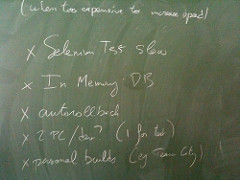 (when too expensive to increase speed)
x Selenium Tests slow
x In Memory DB
x autorollback
x 2 PC / dev? (1 for test)
x personal builds (eg Team City) !